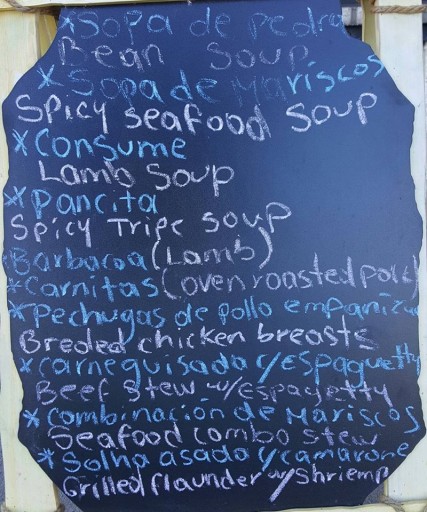 *Sopa de pedra
Bean Soup
*Sopa de Mariscos
Spicy seafood Soup
*Consume
Lamb Soup
*Pancita
Spicy Tripe soup
*Barbacoa (Lamb)
*Carnitas (oven roasted pork)
*Pechugas de pollo empaniza
Breded chicken breasts
*carneguisada c/Espaguetty
Beef Stew w/Espagetty
*Combinación de Mariscos
Seafood combo stew
*Solha asada y camarone
Grilled flaunder w/Shriemp